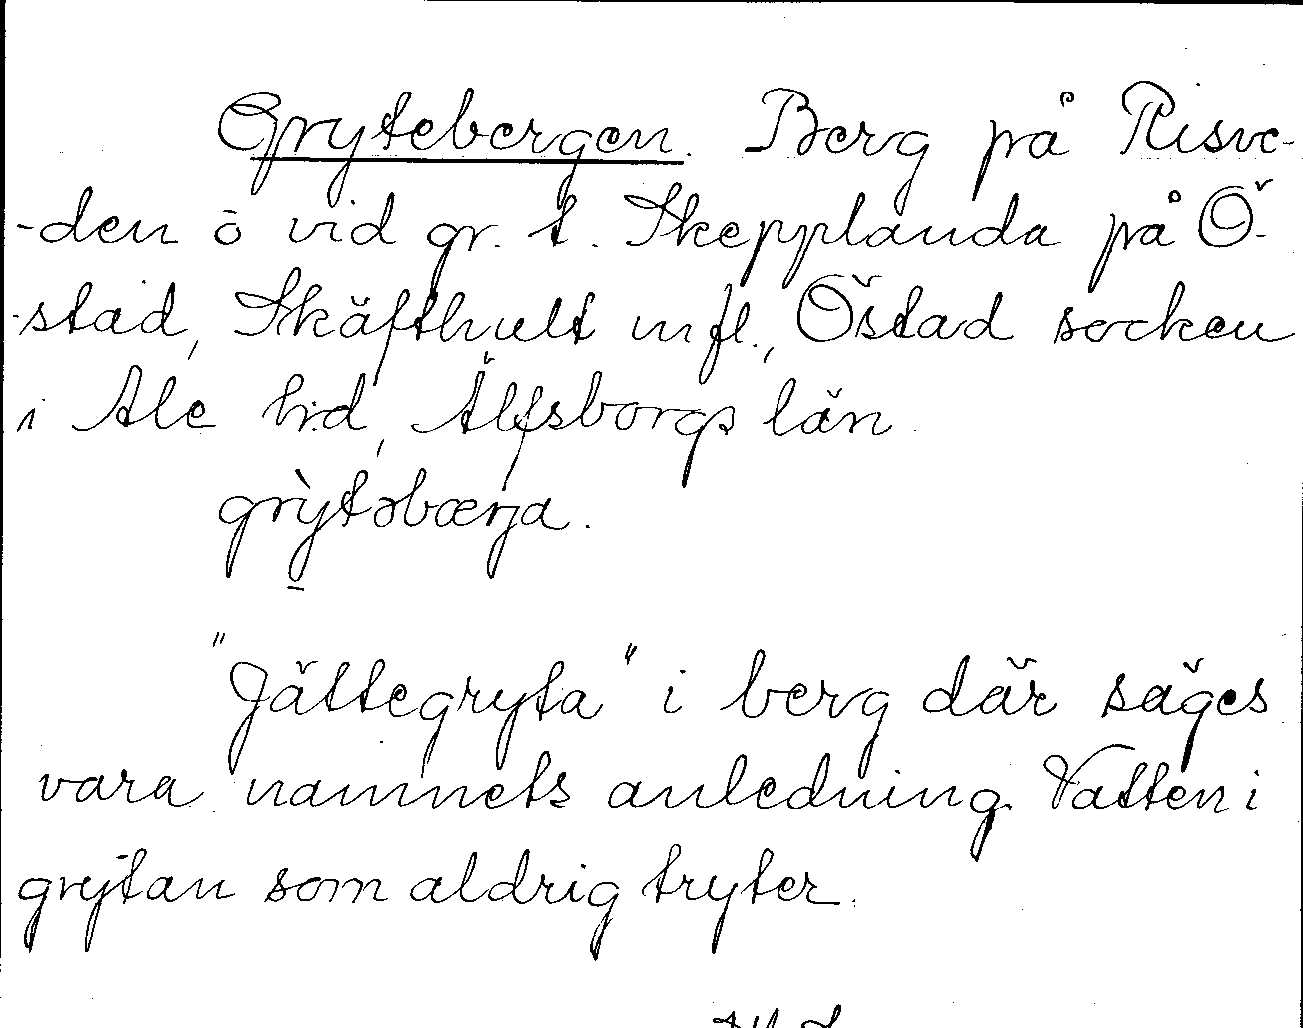 Grytebergen. Berg på Risve-
-den ö vid gr. t. Skepplanda på Ö-
-stad, Skäfthult m fl., Östad socken
i Ale hd, Älfsborgs län.
grỳtəbærja.
"Jättegryta" i berg där säges
vara namnets anledning. Vatten i
grytan som aldrig tryter.